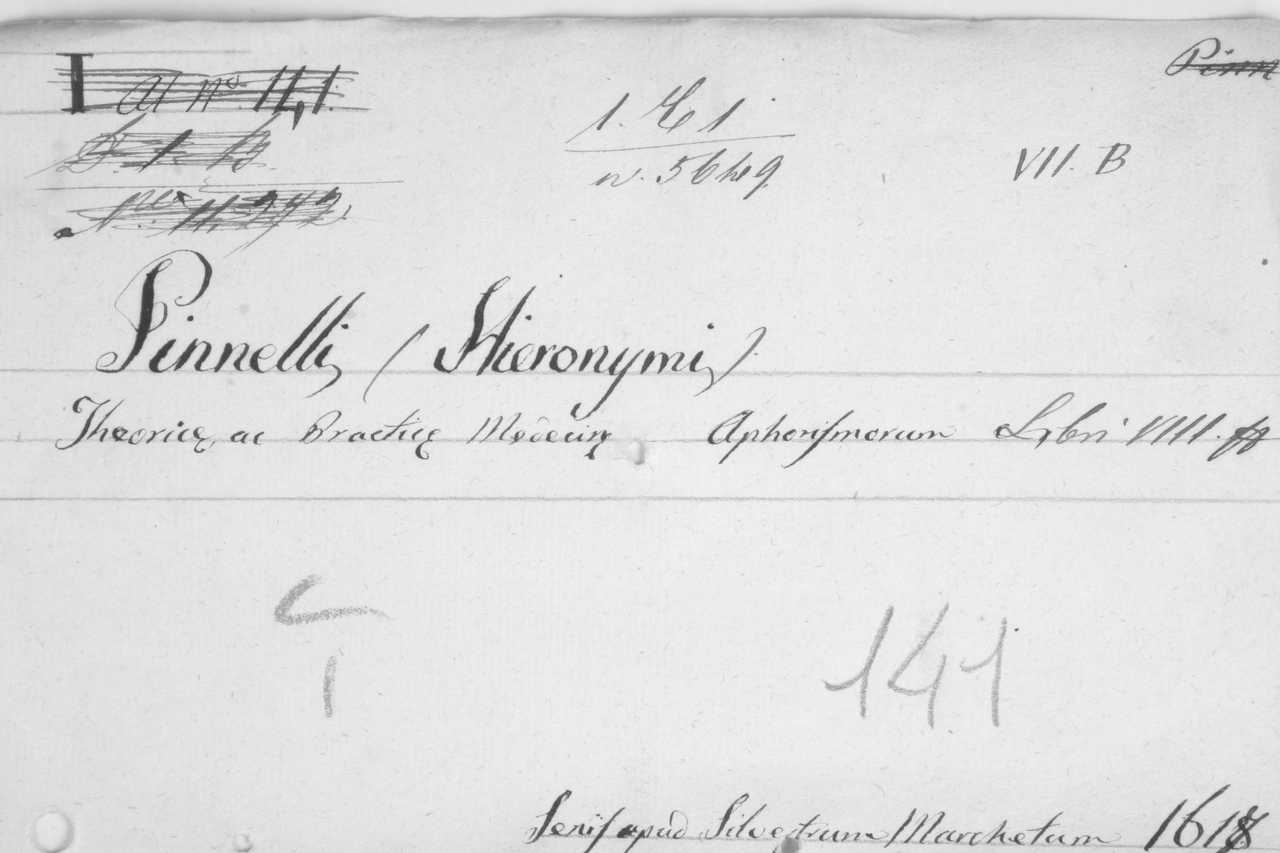 I al nº 141.
Pinn
1. G 1
VII. B
D. 1. B.
Nº. 11.242.
Pinnelli (Hieronymi).
Theoricę, ac Practicę Medecinę Aphorismorum Libri VIII.
C
1
141
Senis apud Silvestrum Marchetum 1618